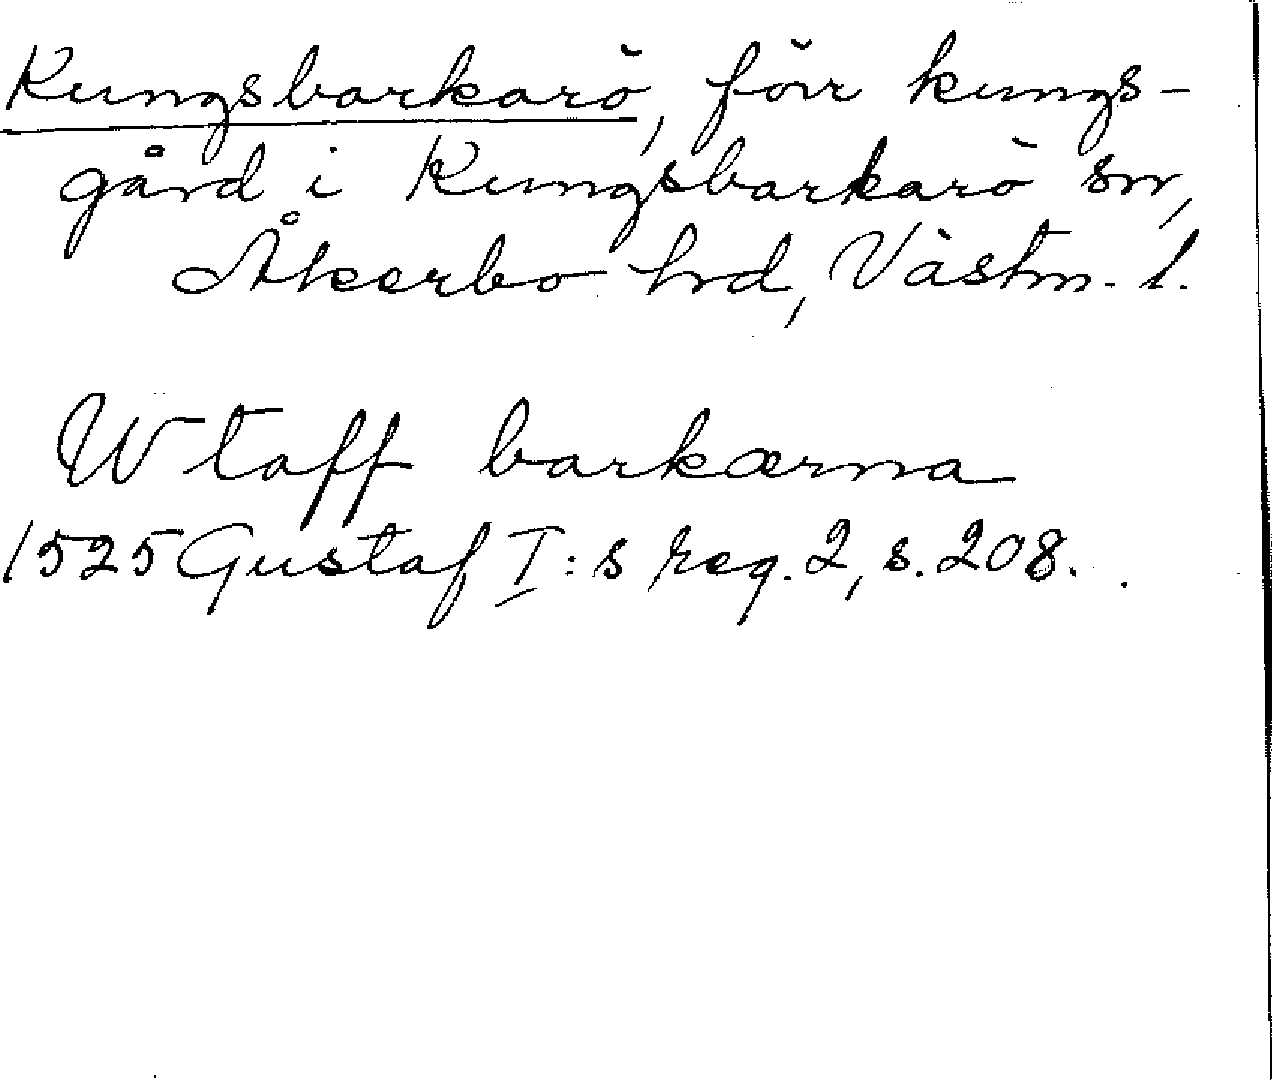 Kungsbarkarö, förr kungs-
gård i Kungsbarkarö sn,
Åkerbo hrd, Västm. l.
W taff barkærna
1525 Gustaf I:s reg. 2, s. 208.